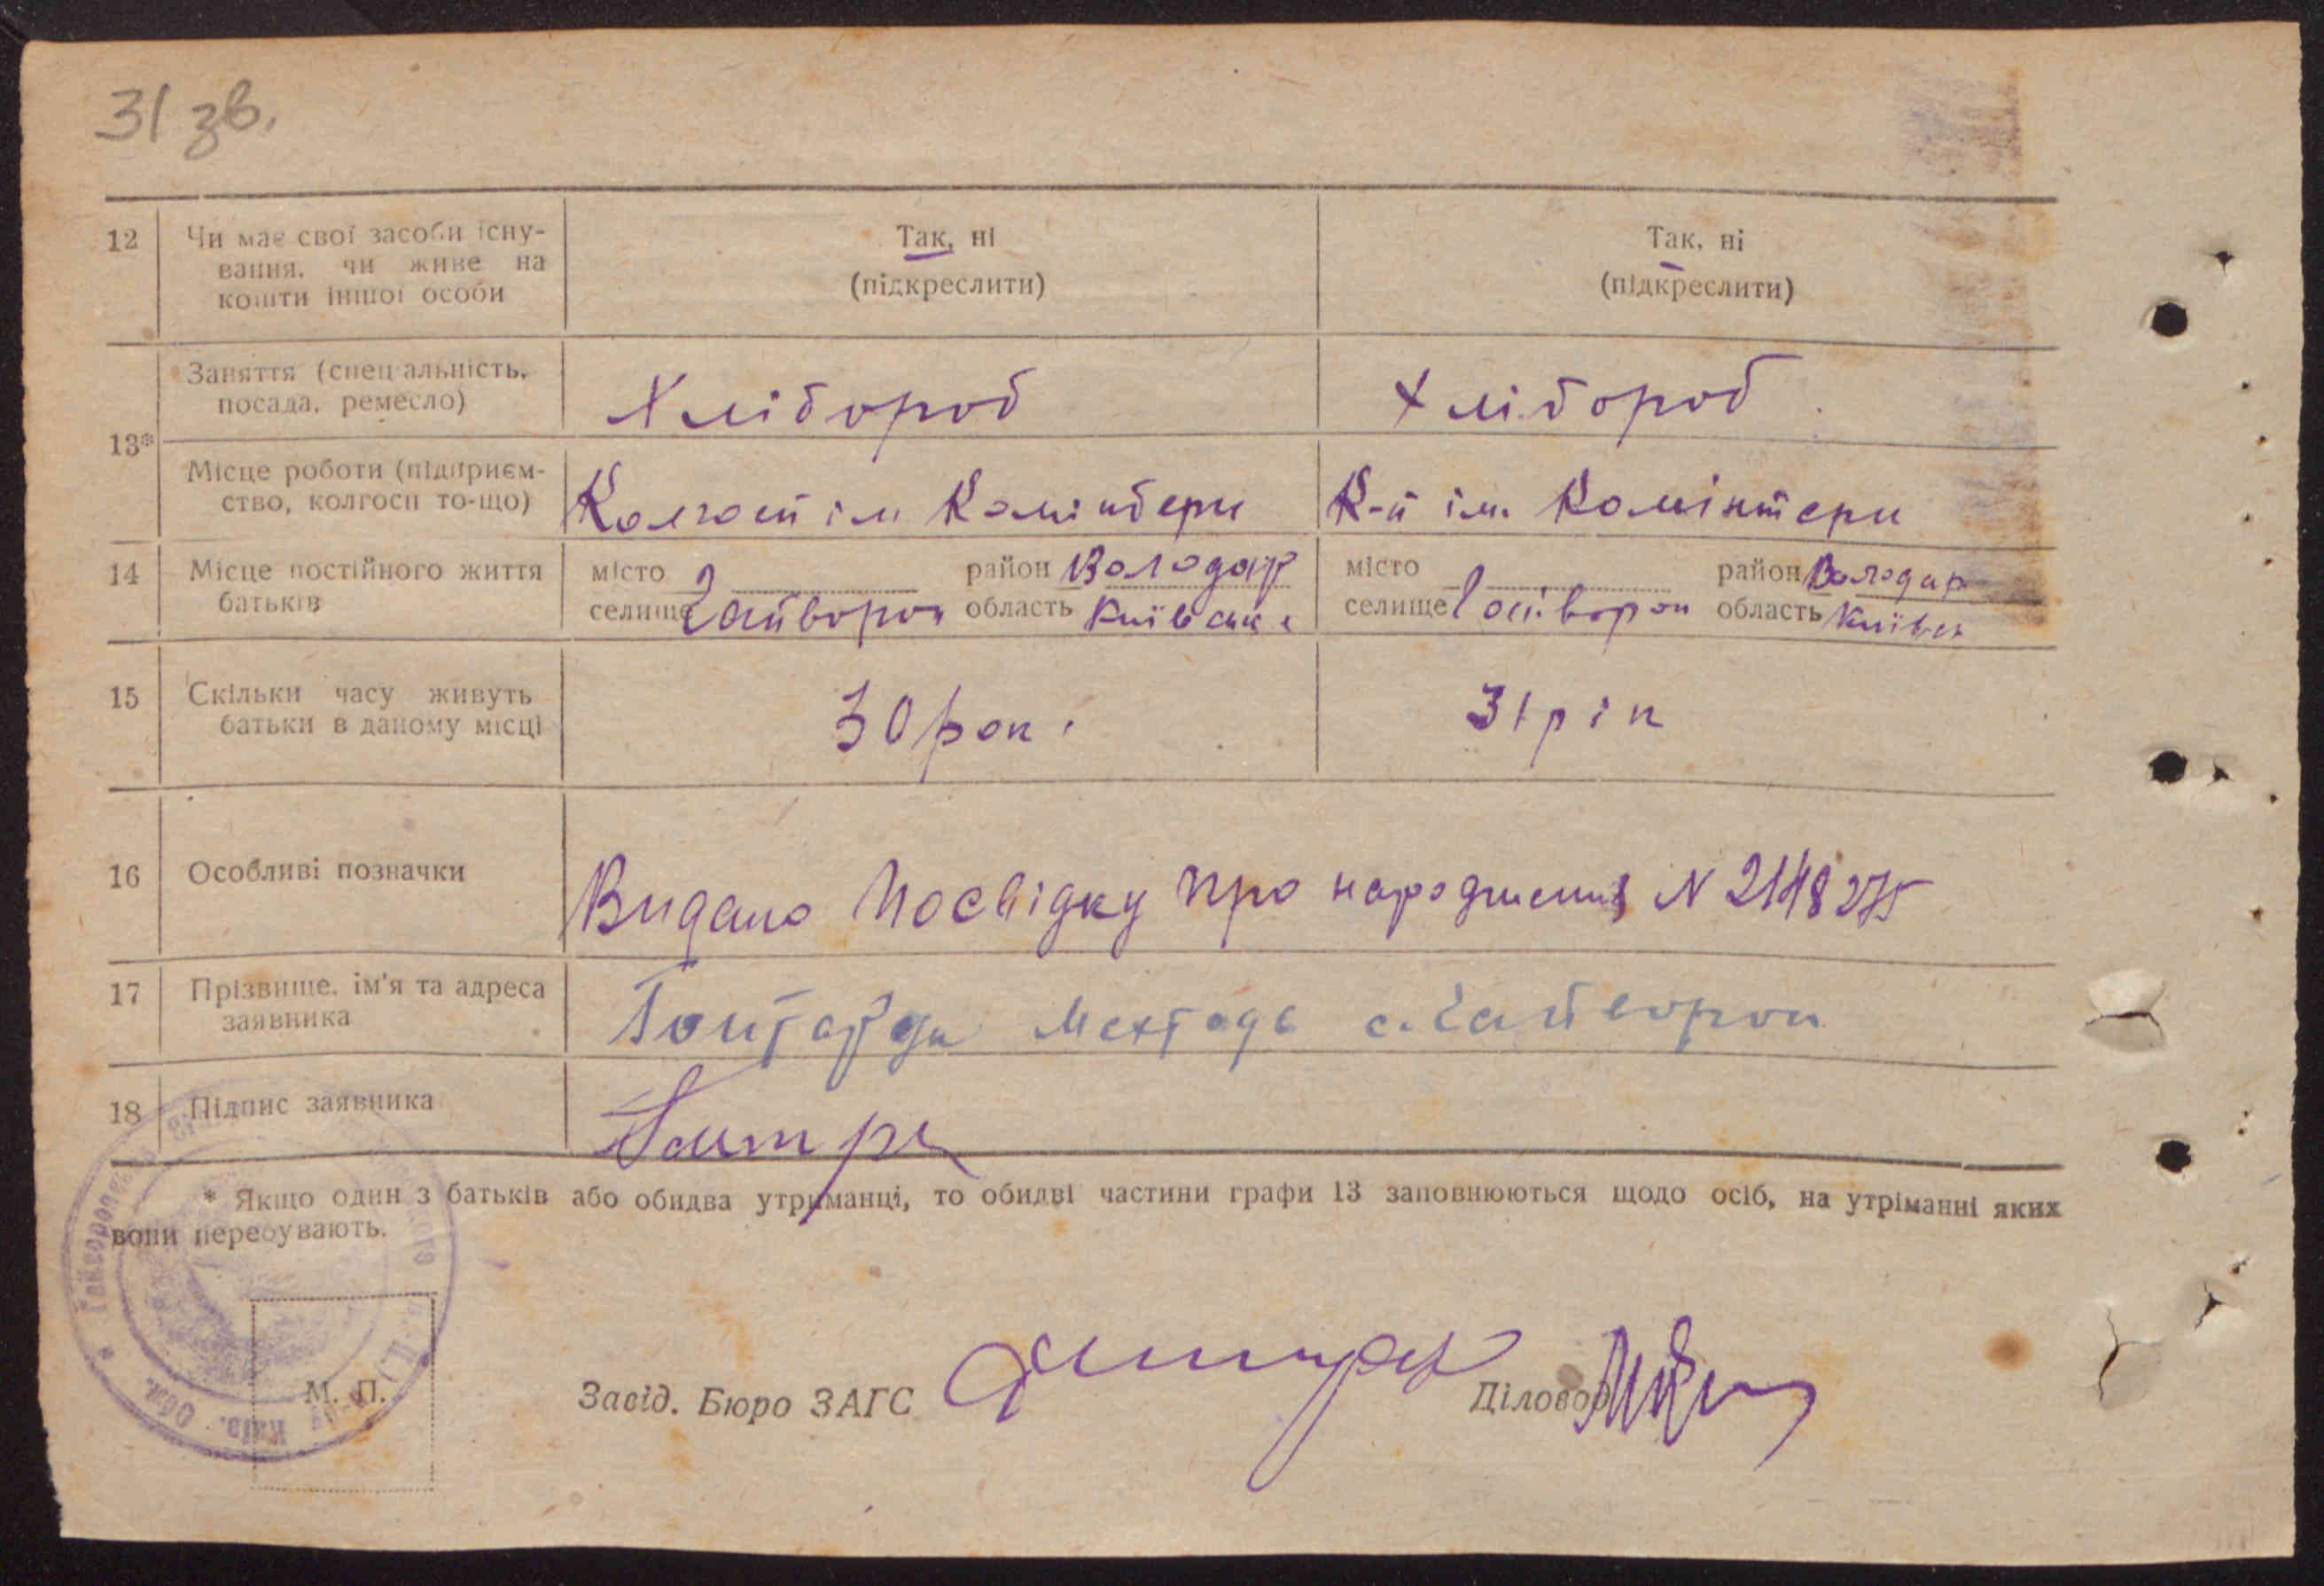 31 зв.
12
Чи має свої засоби існу-
вання, чи живе на
кошти іншої особи
Так, ні
(підкреслити)
Так, ні
(підкреслити)
13*
Заняття (спеціальність,
посада, ремесло)
Хлібороб
Хлібороб
Місце роботи (підприєм-
ство, колгосп то-що)
Колгосп ім Комінтерн
К-п ім. Комінтерн
14
Місце постійного життя
батьків
місто
район Володар
селище Гайворон область Київськ
місто
район Володар
селище Гайворон область Київськ
15
Скільки часу живуть
батьки в даному місці
30 рок
31 рік
16
Особливі позначки
Видано Посвідку про народження N 2148275
17
Прізвище, ім'я та адреса
заявника
с. Гайворон
18
Підпис заявника
* Якщо один з батьків або обидва утриманці, то обидві частини графи 13 заповнюються щодо осіб, на утріманні яких
вони перебувають.
М. П.
Завід. Бюро ЗАГС
Діловод
Київ. Обл.